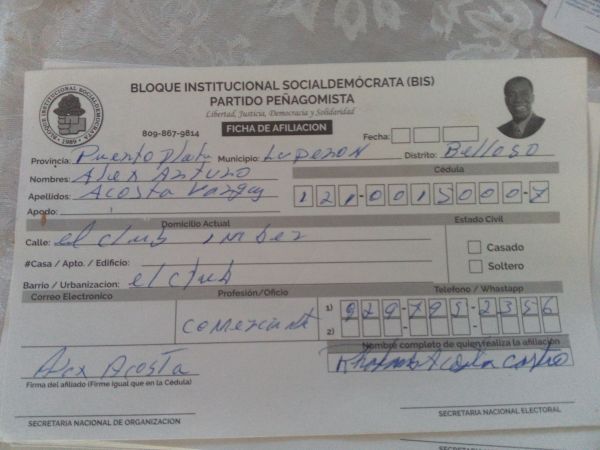 BLOQUE INSTITUCIONAL SOCIALDEMÓCRATA (BIS)
PARTIDO PEÑAGOMISTA
Libertad, Justicia, Democracia y Solidaridad
BLOQUE INSTITUCIONAL SOCIALDEMOCRATA
1989
809-867-9814
FICHA DE AFILIACION
Fecha:
Provincia: Puerto Plata Municipio: Luperon Distrito: Belloso
Nombres: Alex Arturo
Cédula
Apellidos: Acosta Vargas
121-0015000-7
Apodo:
Domicilio Actual
Estado Civil
Calle: el club
#Casa / Apto. / Edificio:
Casado
Soltero
Barrio / Urbanizacion: el club
Correo Electronico
Profesión/Oficio
Telefono / Whastapp
1) 829-795-2356
2)
Nombre completo de quien realiza la afiliación
Alex Acosta
Acosta Castro
Firma del afiliado (Firme igual que en la Cédula)
SECRETARIA NACIONAL DE ORGANIZACION
SECRETARIA NACIONAL ELECTORAL